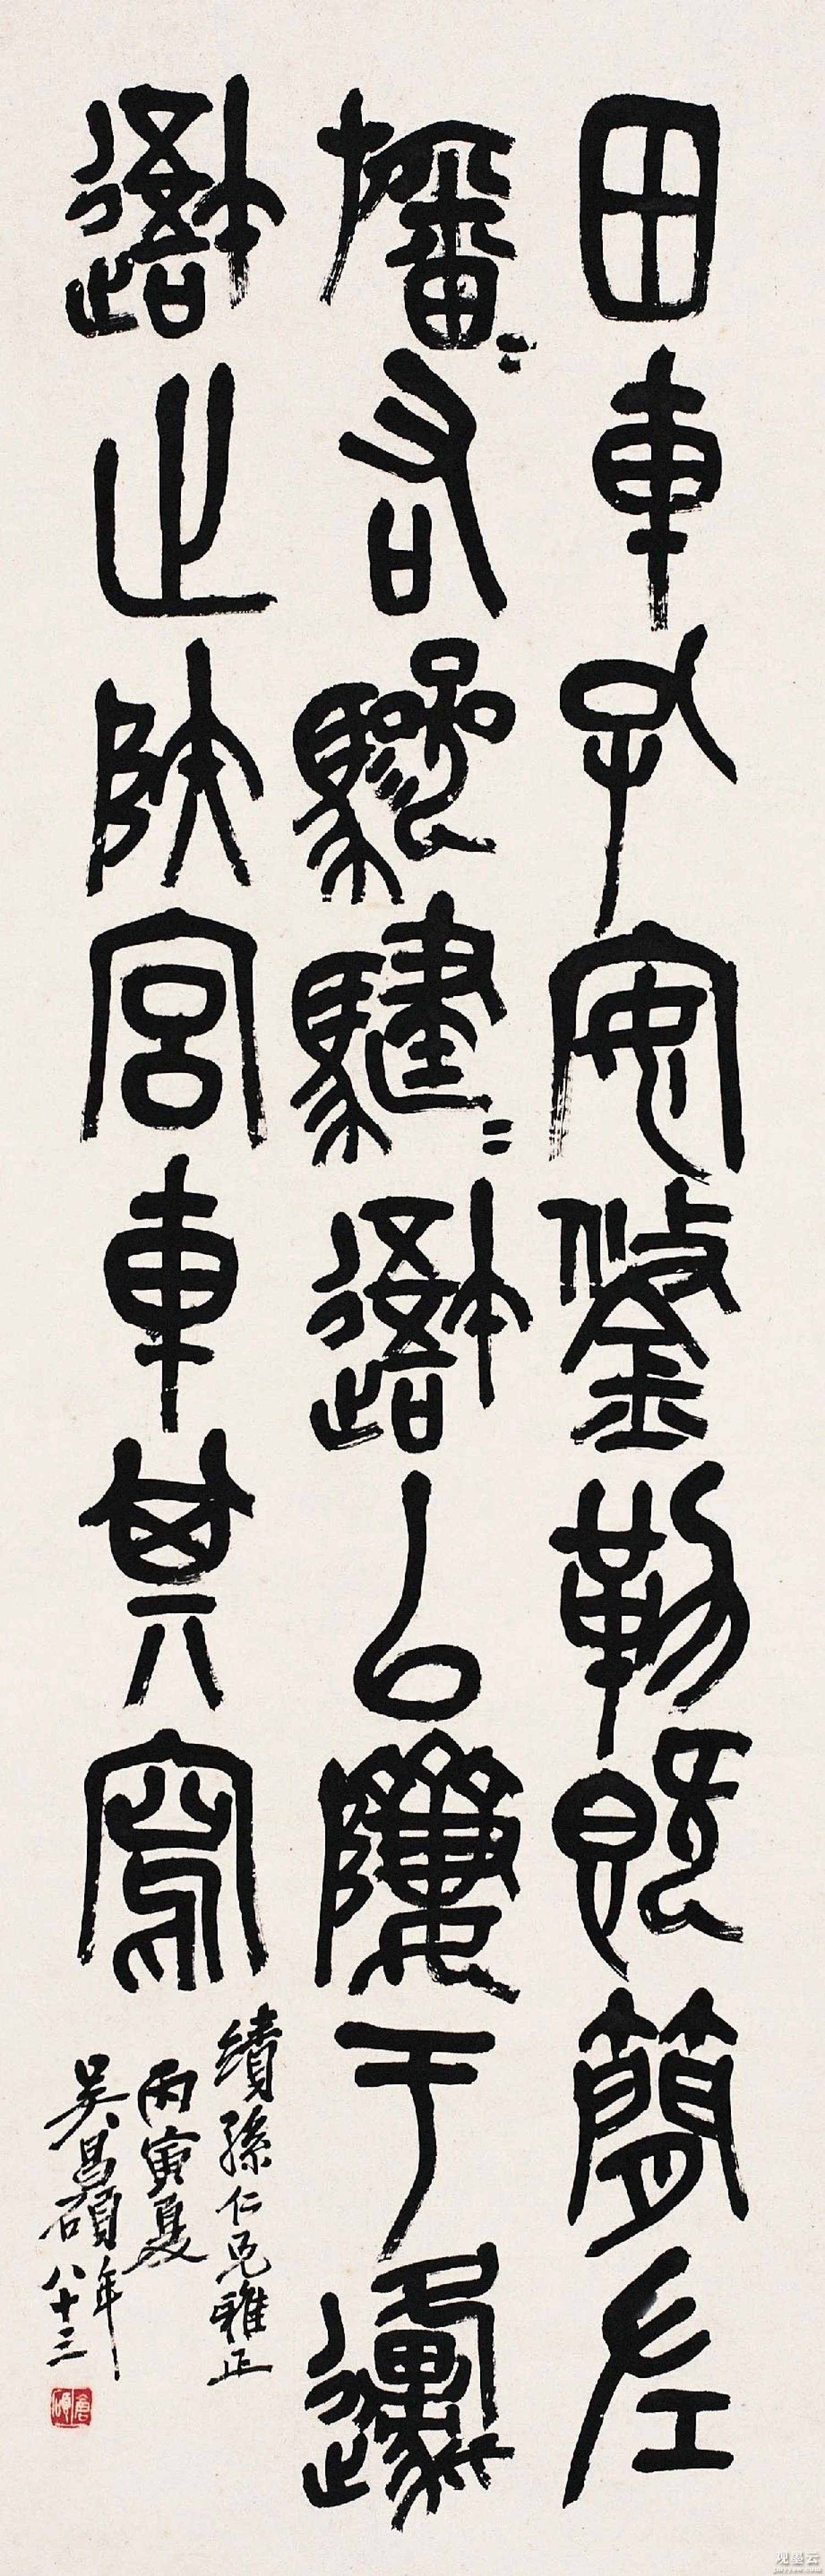 田車孔安鋚勒既簡左
驂=右驂騝=𨖍以隮于邍
𨖍止陝宮車其寫
績孫仁兄雅正
丙寅夏
吳昌碩年
八十三
倉碩
观墨云